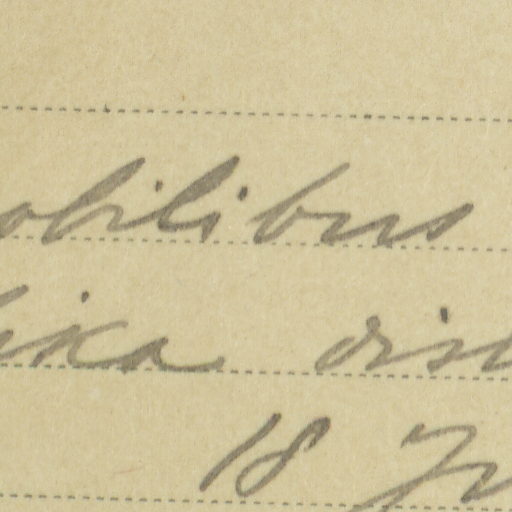 obilibus
ika dist
18 Ju